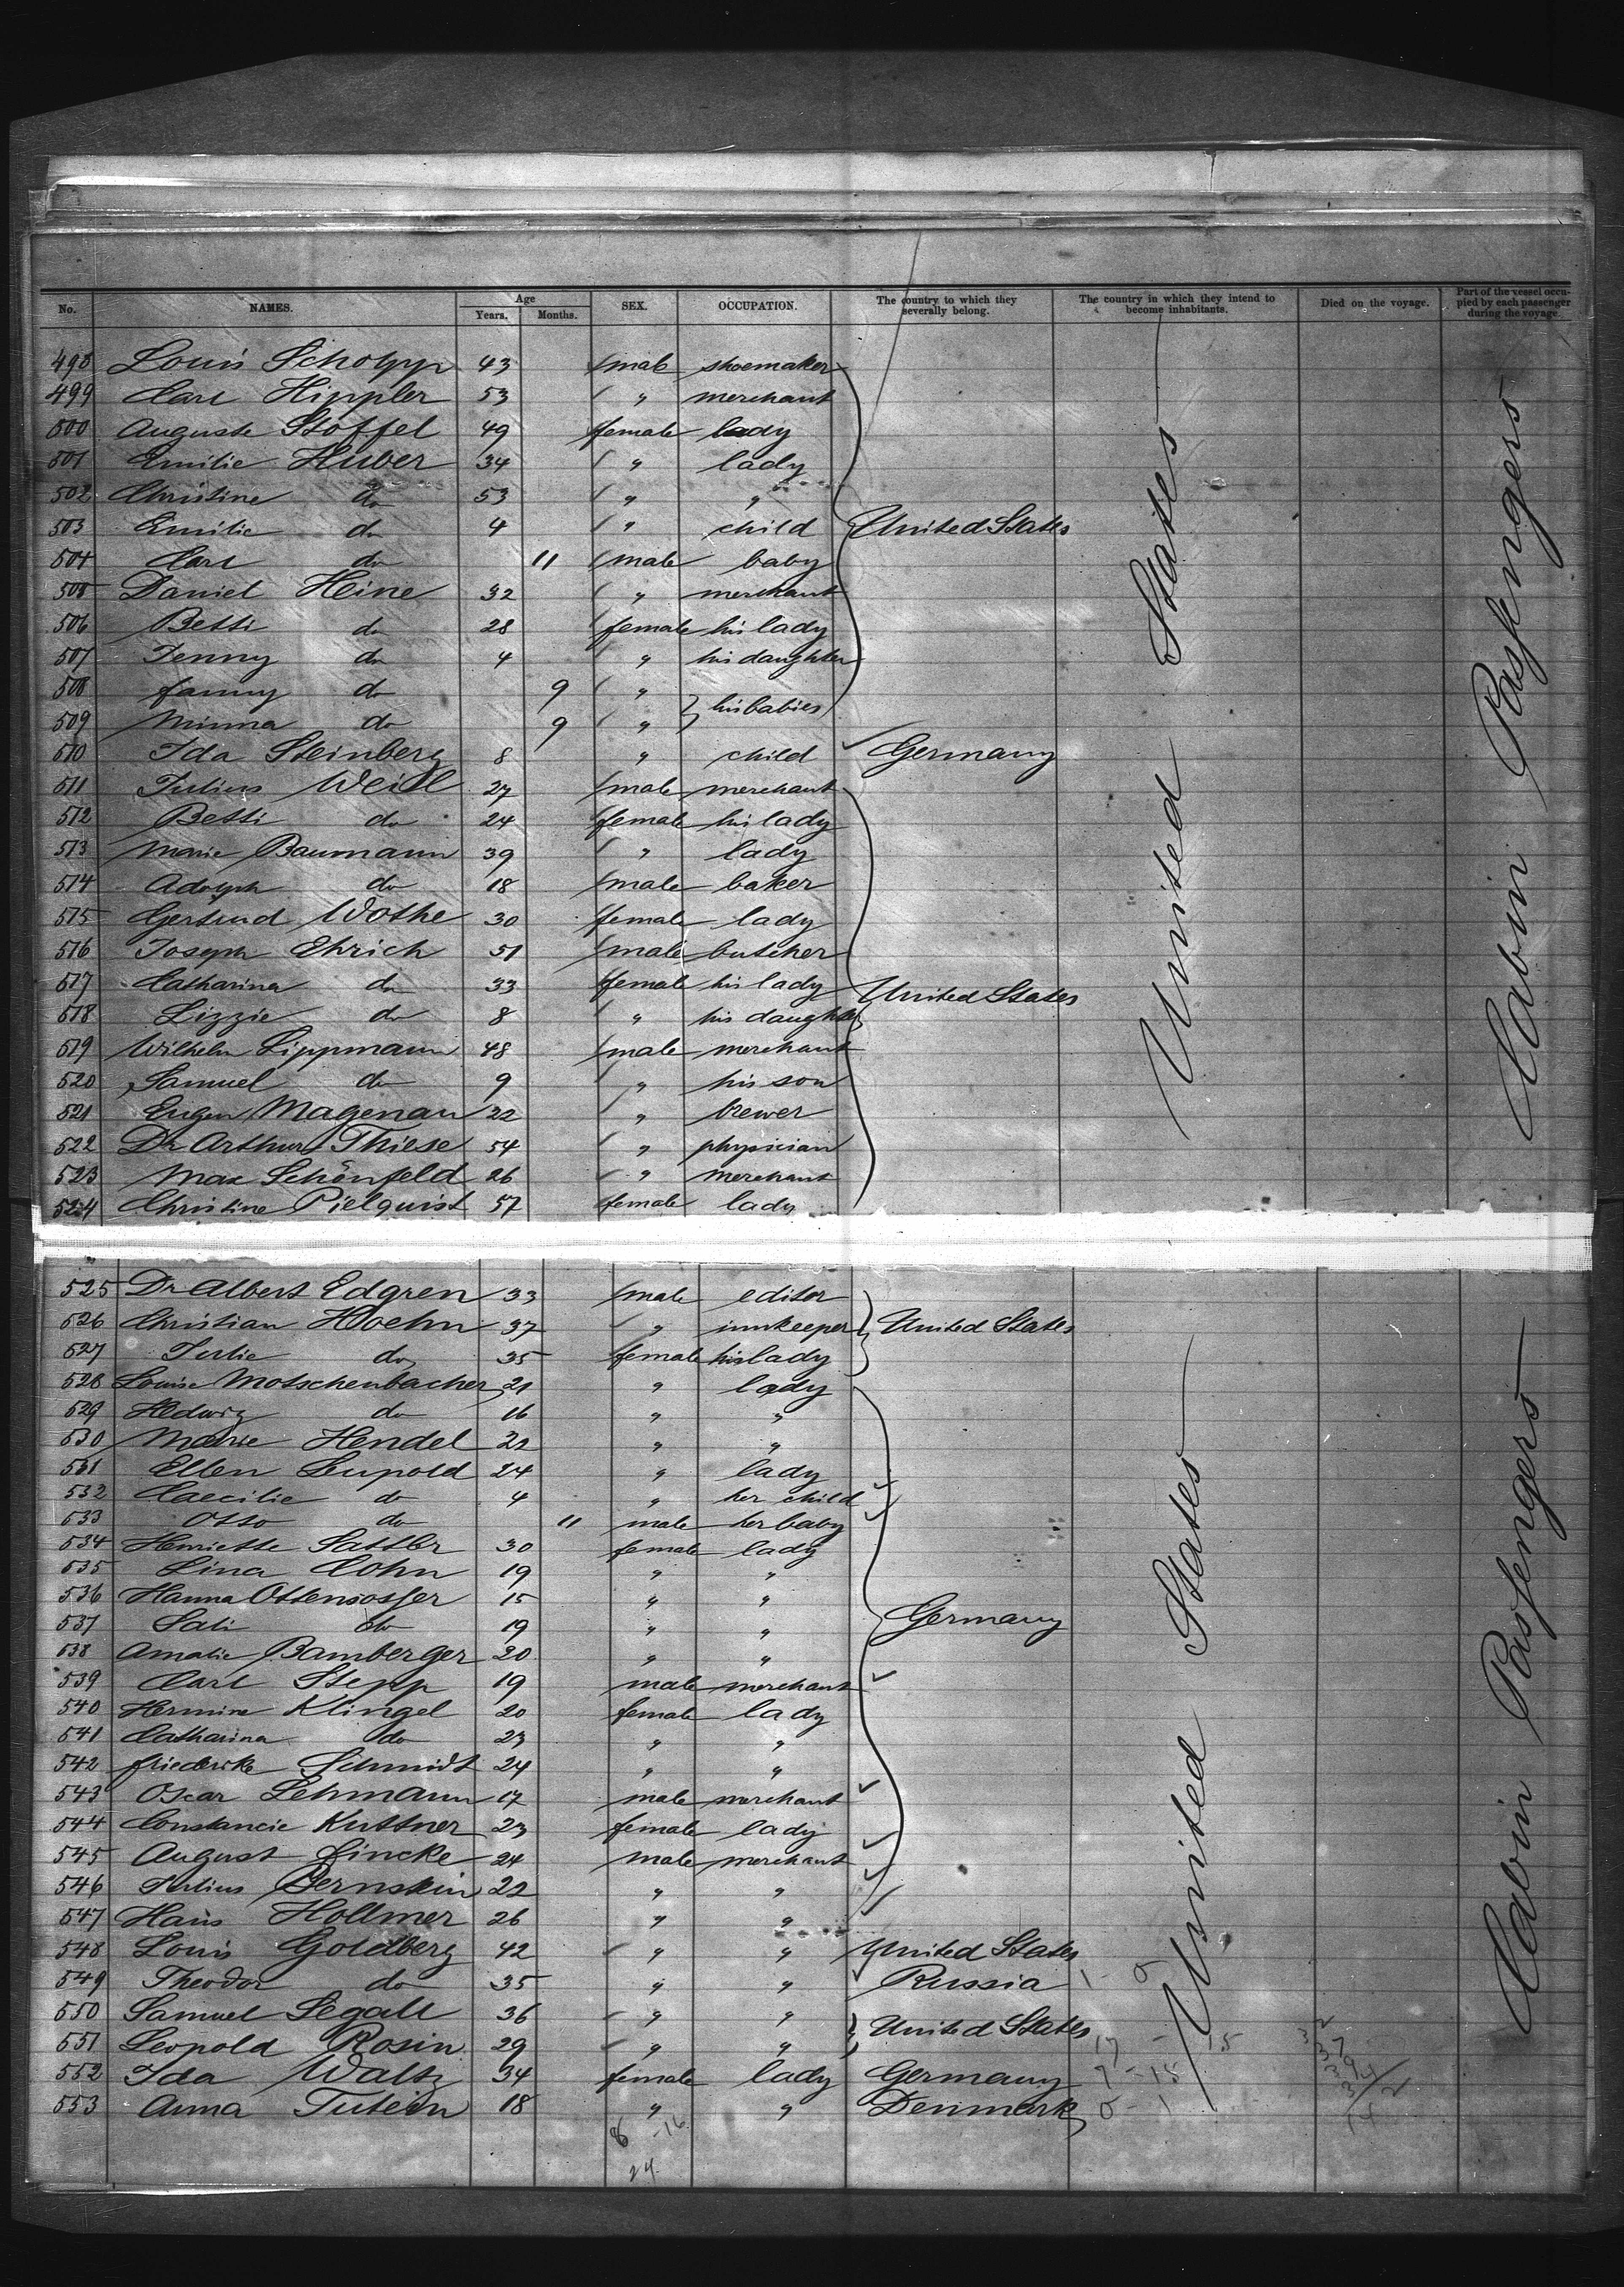 No. NAMES. Age Years. Months. SEX. OCCUPATION. The country to which they severally belong. The country in which they intend to become inhabitants. Died on the voyage. Part of the vessel occupied by each passenger during the voyage.
498 Louis Schopp 43 male shoemaker
499 Carl Hippler 53 " merchant
500 Auguste Stoffel 49 female lady
501 Emilie Huber 34 " lady
502 Christine do 53 " "
503 Emilie do 4 " child United States
504 Carl do 11 male baby
505 Daniel Heine 32 " merchant
506 Betti do 28 female his lady
507 Jenny do 4 " his daughter
508 Fanny do 9 " his babies
509 Minna do 9 "
510 Ida Steinberg 8 " child Germany
511 Julius Weill 27 male merchant
512 Betti do 24 female his lady
513 Marie Baumann 39 " lady
514 Adolph do 18 male baker
515 Gertrud Wothe 30 female lady
516 Joseph Ehrich 51 male butcher
517 Catharina do 33 female his lady United States
518 Lizzie do 8 " his daughter
519 Wilhelm Lippmann 48 male merchant
520 Samuel do 9 " his son
521 Eugen Magenau 22 " brewer
522 Dr Arthur Thiese 54 " physician
523 Max Schönfeld 26 " merchant
524 Christine Pielquist 57 female lady
United States
Cabin Passengers
525 Dr Albert Edgren 33 male editor
526 Christian Hoehn 37 " innkeeper United States
527 Julie do 35 female his lady
528 Louise Motschenbacher 21 " lady
529 Hedwig do 16 " "
530 Marie Hendel 22 " "
531 Ellen Leupold 24 " lady
532 Caecilie do 4 " her child
533 Otto do 11 male her baby
534 Henriette Sattler 30 female lady
535 Lina Cohn 19 " "
536 Hanna Ottensosser 15 " "
537 Sali do 19 " " Germany
538 Amalie Bamberger 20 " "
539 Carl Stepp 19 male merchant
540 Hermine Klingel 20 female lady
541 Catharina do 23 " "
542 Friedericke Schmidt 24 " "
543 Oscar Lehmann 17 male merchant
544 Constancie Kuttner 23 female lady
545 August Fincke 24 male merchant
546 Julius Bernstein 22 " "
547 Hans Hollmer 26 " "
548 Louis Goldberg 42 " " United States
549 Theodor do 35 " " Russia 1 - 0
550 Samuel Segall 36 " " United States
551 Leopold Rosin 29 " " 17 - 15
552 Ida Waltz 34 female lady Germany 7 - 15
553 Anna Tutein 18 " " Denmark 0 - 1
8 - 16
24
United States
Cabin Passengers